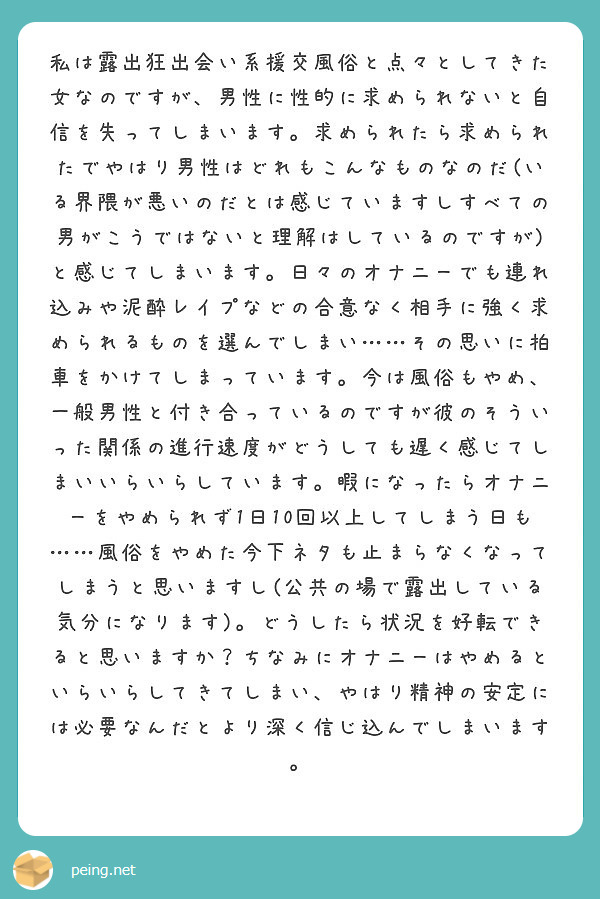 私は露出狂出会い系援交風俗と点々としてきた
女なのですが、男性に性的に求められないと自
信を失ってしまいます。求められたら求められ
たでやはり男性はどれもこんなものなのだ(い
る界隈が悪いのだとは感じていますしすべての
男がこうではないと理解はしているのですが)
と感じてしまいます。日々のオナニーでも連れ
込みや泥酔レイプなどの合意なく相手に強く求
められるものを選んでしまい……その思いに拍
車をかけてしまっています。今は風俗もやめ、
一般男性と付き合っているのですが彼のそうい
った関係の進行速度がどうしても遅く感じてし
まいいらいらしています。暇になったらオナニ
ーをやめられず1日10回以上してしまう日も
……風俗をやめた今下ネタも止まらなくなって
しまうと思いますし(公共の場で露出している
気分になります)。どうしたら状況を好転でき
ると思いますか?ちなみにオナニーはやめると
いらいらしてきてしまい、やはり精神の安定に
は必要なんだとより深く信じ込んでしまいます
。
peing.net